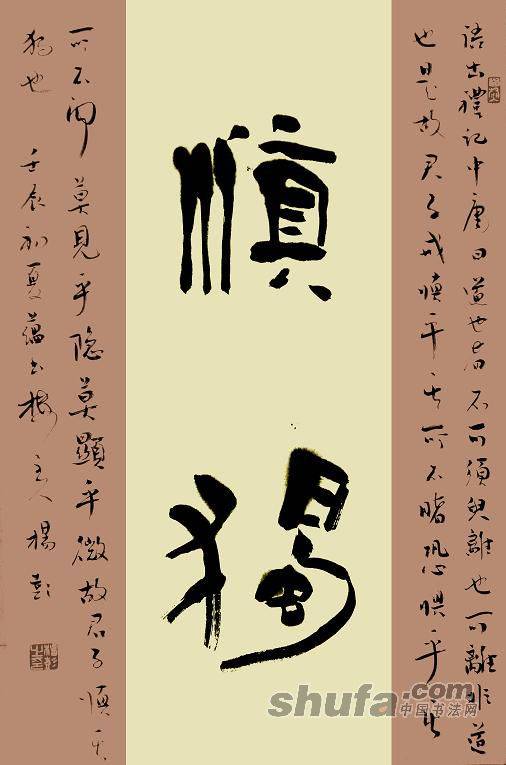 語出禮記中庸曰道也者不可須臾離也可離非道
也是故君子戒慎乎其所不睹恐懼乎其
慎獨
所不聞莫見乎隐莫顯乎微故君子慎其
獨也 壬辰初夏蘊玉樓主人楊彭
shufa.com
中国书法网